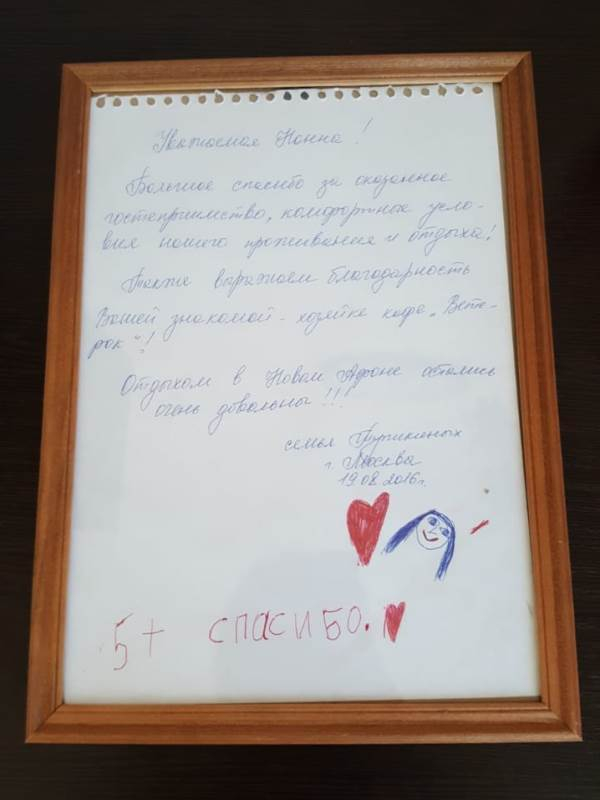 Уважаемая Нонна!
Большое спасибо за оказанное
гостеприимство, комфортные усло-
вия нашего проживания и отдыха!
Также выражаем благодарность
Вашей знакомой - хозяйке кафе „Вете-
рок"!
Отдыхом в Новом Афоне остались
очень довольны!!!
семья
г. Москва
19.08.2016г.
5+ спасибо.